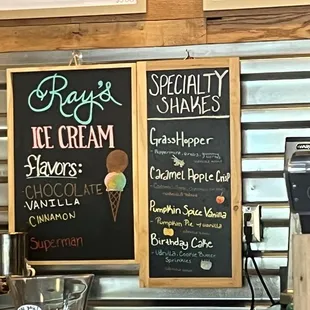 Ray's
ICE CREAM
flavors:
-CHOCOLATE
-VANILLA
CINNAMON
Superman
SPECIALTY
SHAKES
GrassHopper
Caramel Apple Crisp
Pumpkin Spice Vanilla
Pumpkin Pie + vanilla
Birthday Cake
Vanilla, Cookie
Sprinkles